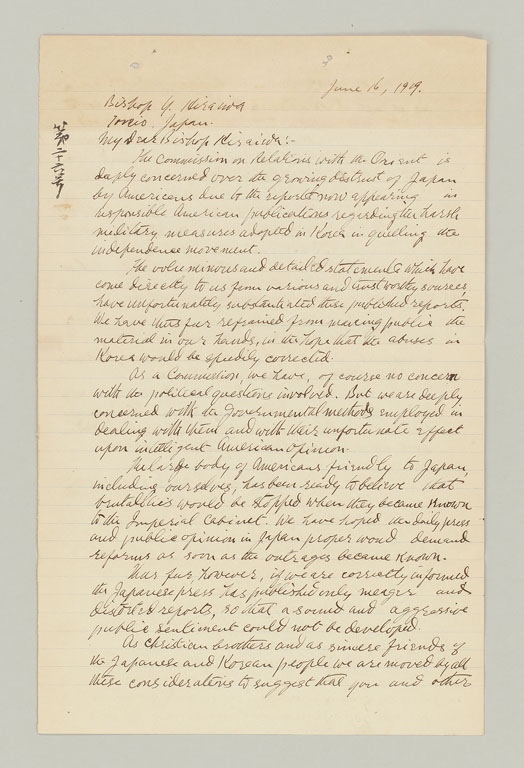 June 16, 1919.
Bishop Y. Hiraiwa
Tokio, Japan.
My Dear Bishop Hiraiwa:-
The Commission on Relations with the Orient is
deeply concerned over the growing distrust of Japan
by Americans due to the reports now appearing in
responsible American publications regarding the harsh
military measures adopted in Korea in quelling the
independence movement.
The voluminous and detailed statements which have
come directly to us from various and trustworthy sources,
have unfortunately substantiated these published reports.
We have thus far refrained from making public the
material in our hands, in the hope that the abuses in
Korea would be speedily corrected.
As a Commission, we have, of course no concern
with the political questions involved. But we are deeply
concerned with the governmental methods employed in
dealing with them and with their unfortunate effect
upon intelligent American opinion.
The large body of Americans friendly to Japan,
including ourselves, has been ready to believe that
brutalities would be stopped when they became known
to the Imperial Cabinet. We have hoped the daily press
and public opinion in Japan proper would demand
reforms as soon as the outrages became known.
Thus far, however, if we are correctly informed
the Japanese press has published only meager and
distorted reports, so that a sound and aggressive
public sentiment could not be developed.
As Christian brothers and as sincere friends of
the Japanese and Korean people we are moved by all
these considerations to suggest that you and other
第二十六号